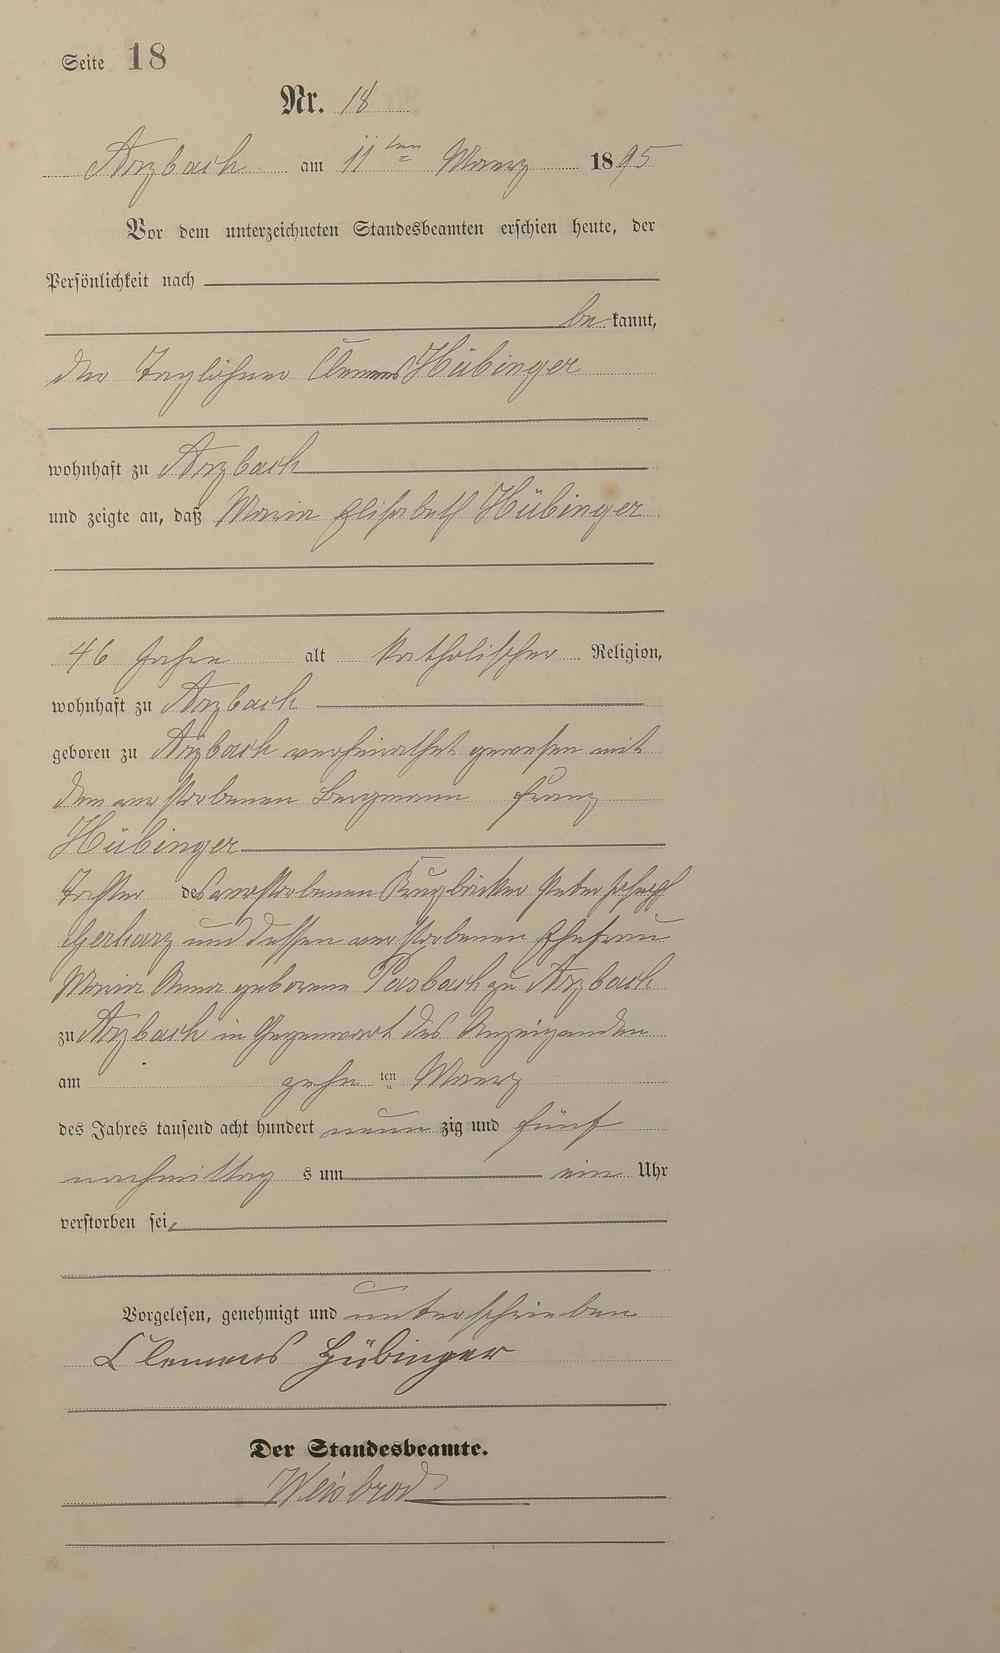 Seite 18
Nr. 18
Arzbach am 11ten Maerz 1895
Vor dem unterzeichneten Standesbeamten erschien heute, der
Persönlichkeit nach
be kannt,
der Taglöhner Clemens Hübinger
wohnhaft zu Arzbach
und zeigte an, daß Maria Elisabeth Hübinger
46 Jahre alt katholischer Religion,
wohnhaft zu Arzbach
geboren zu Arzbach verheirathet gewesen mit
dem verstorbenen Bergmann Franz
Hübinger
Tochter des verstorbenen Krugbäcker Peter Joseph
Gerharz und dessen verstorbenen Ehefrau
Maria Anna geborene Pasbach zu Arzbach
zu Arzbach in Gegenwart des Anzeigenden
am zehn ten Maerz
des Jahres tausend acht hundert neun zig und fünf
nachmittag s um ein Uhr
verstorben sei.
Vorgelesen, genehmigt und unterschrieben
Clemens Hübinger
Der Standesbeamte.
Weisbrod